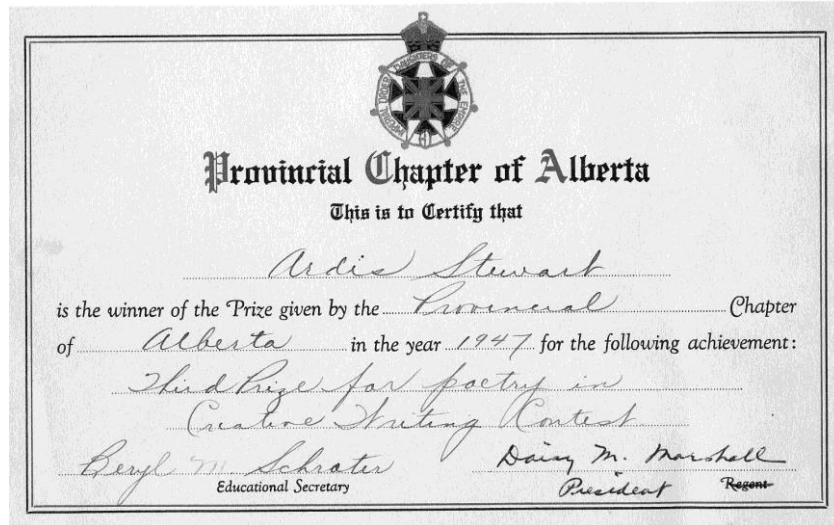 IMPERIAL ORDER DAUGHTERS OF THE EMPIRE
Provincial Chapter of Alberta
This is to Certify that
Ardis Stewart
is the winner of the Prize given by the Provincial Chapter
of Alberta in the year 1947 for the following achievement:
Third Prize for poetry in
Creative Writing Contest
Beryl M. Schrater Daisy M. Marshall
Educational Secretary President Regent